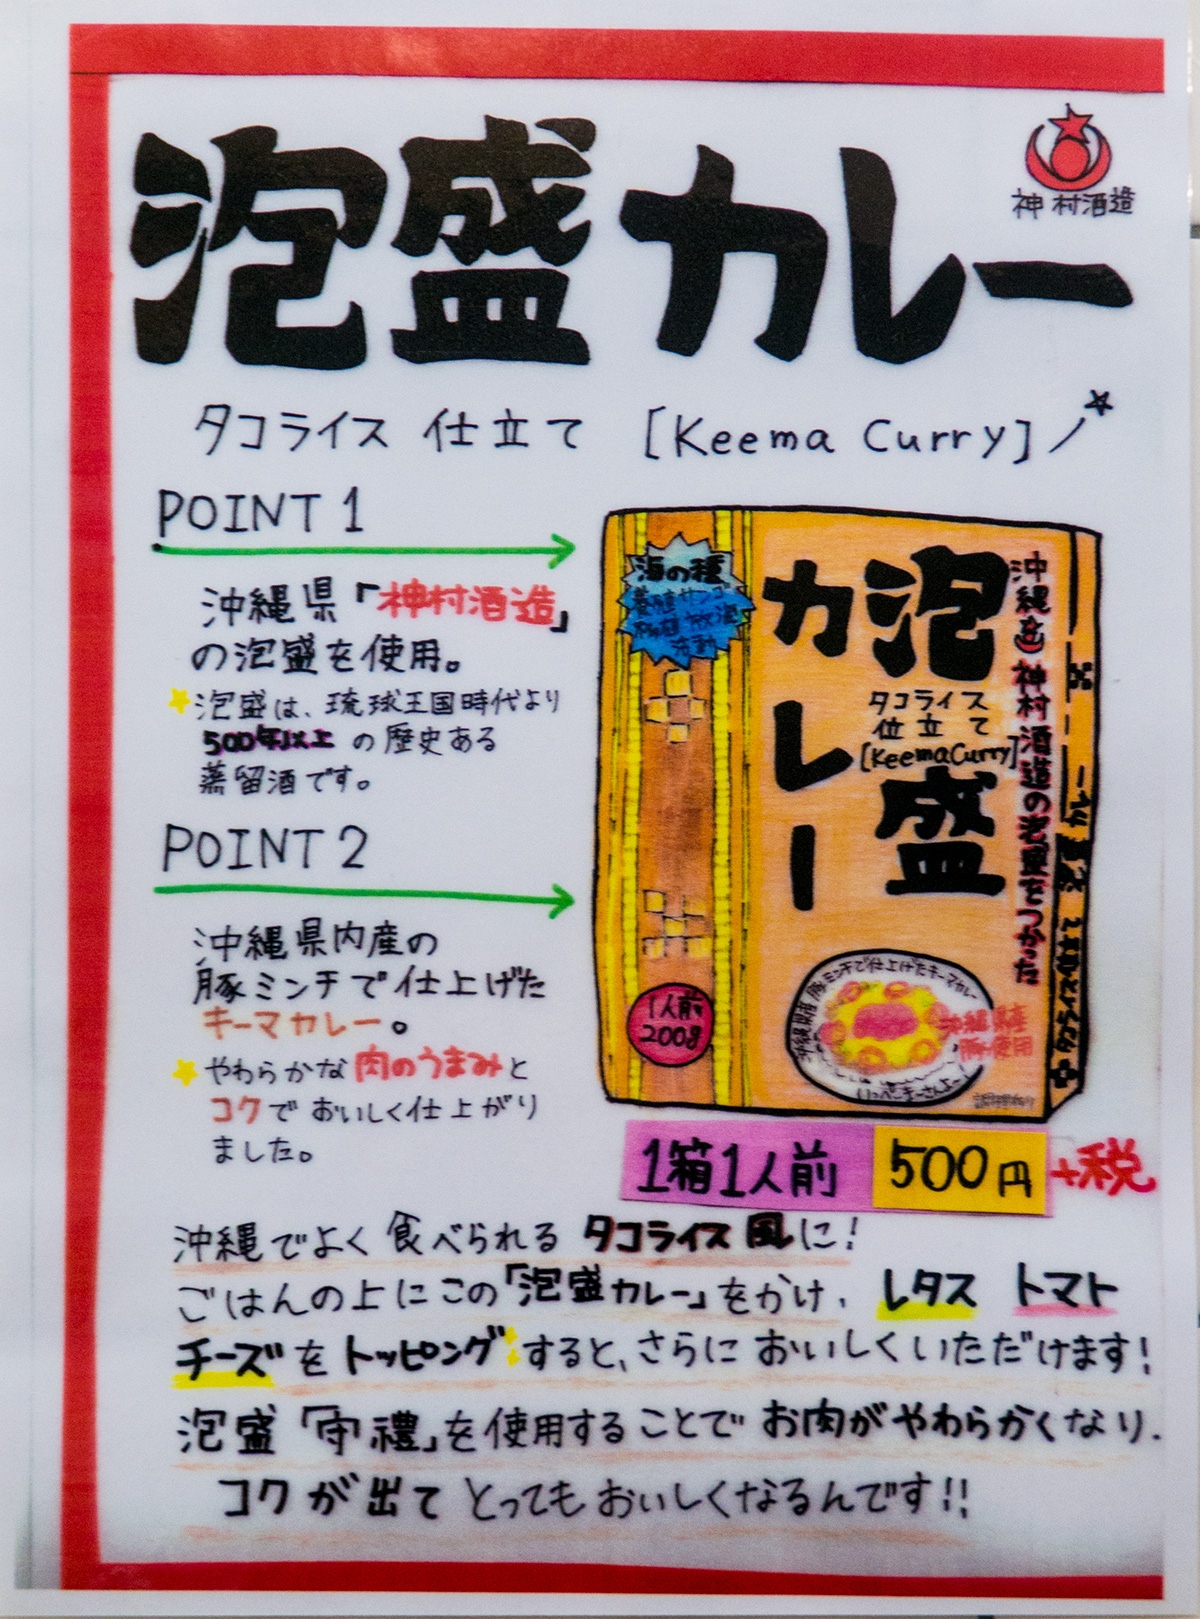 泡盛カレー
神村酒造
タコライス 仕立て [Keema Curry]
POINT 1
沖縄県「神村酒造」
の泡盛を使用。
泡盛は、琉球王国時代より
500年以上 の歴史ある
蒸留酒です。
POINT 2
沖縄県内産の
豚ミンチで仕上げた
キーマカレー。
やわらかな肉のうまみと
コクで おいしく仕上がり
ました。
海の種
養殖サンゴ
活動
泡盛
カレー
タコライス
仕立て
[KeemaCurry]
神村酒造の泡盛をつかった
豚ミンチで仕上げたキーマカレー
沖縄県産
豚使用
1人前
200g
タコライス仕立て 泡盛 カレー
1箱1人前 500円 +税
沖縄でよく 食べられる タコライス風に!
ごはんの上にこの「泡盛カレー」をかけ、レタス トマト
チーズをトッピングすると、さらに おいしくいただけます!
泡盛「守禮」を使用することで お肉がやわらかくなり、
コクが出て とってもおいしくなるんです!!